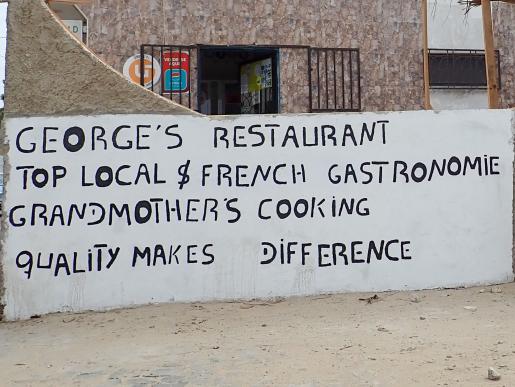 GEORGE'S RESTAURANT
TOP LOCAL $ FRENCH GASTRONOMiE
GRANDMOTHER'S COOKiNG
QUALiTY MAKES DiFFERENCE